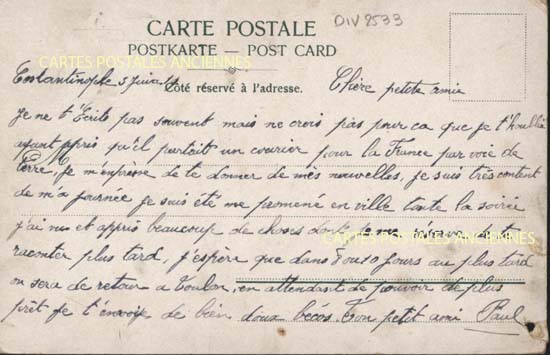 CARTE POSTALE
DIV 2533
POSTKARTE — POST CARD
CARTES POSTALES ANCIENNES
Constantinople 3 Juin
Côté réservé à l'adresse.
Chère petite amie
Je ne t'Ecris pas souvent mais ne crois pas pour ca que je t'houblie
ayant appris qu'il partait un courier pour la France par voie de
Terre, je m'enprèsse de te donner de mes nouvelles, je suis très content
de m'a journée je suis été me promené en ville toute la soirée
j'ai vu et appris beaucoup de choses dont je me réserve de te
CARTES POSTALES ANCIENNES
raconter plus tard, j'espère que dans 8 ou 10 jours au plus tard
on sera de retour a Toulon, en attendant de pouvoir de plus
près je t'envoie de bien doux bécos. Ton petit ami Paul